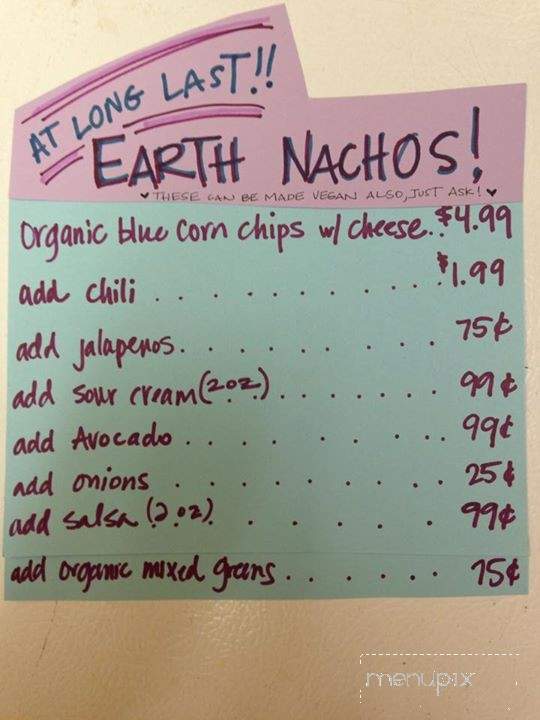 AT LONG LAST!!
EARTH NACHOS!
♥ THESE CAN BE MADE VEGAN ALSO, JUST ASK! ♥
Organic blue corn chips w/ cheese..$4.99
add chili . . . . . . . . . . . . $1.99
add jalapenos. . . . . . . . . 75¢
add sour cream (2oz) . . . . . . . 99¢
add Avocado . . . . . . . 99¢
add onions . . . . . . . . . 25¢
add salsa (2oz) . . . . . . . 99¢
add organic mixed greens . . . . . . 75¢
menupix